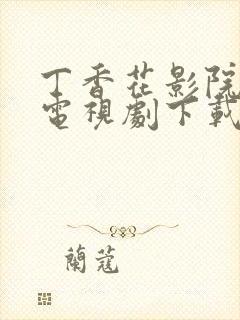 丁香花影院
電視劇下載
蘭蔻